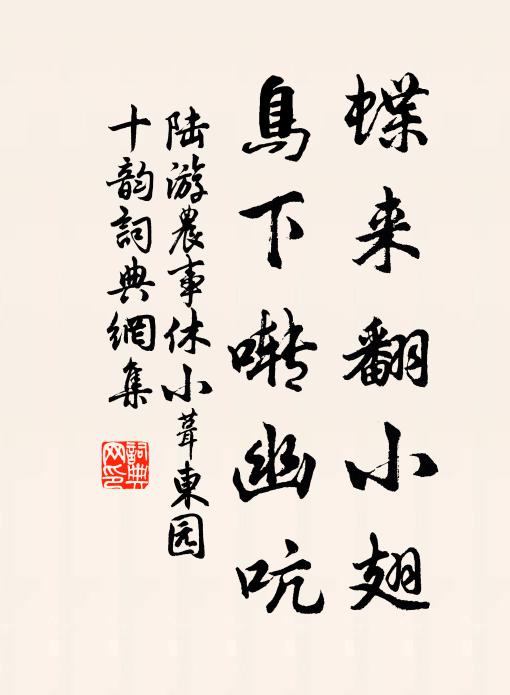 蝶来翻小翅
鳥下啭幽吭
陆游農事休小葺東园
十韵詞典網集
詞典網印